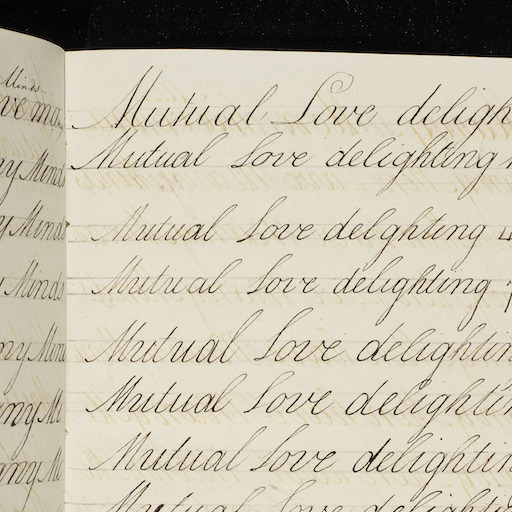 Minds
ve ma
ny Minds
y Minds
y Minds
ny Mind
any Mi
any Mi
Mutual Love deligh
Mutual Love delighting
Mutual Love delghting 4
Mutual Love delighting 7
Mutual Love delightin
Mutual Love delightin
Mutual Love delightin
Mutual Love delightin